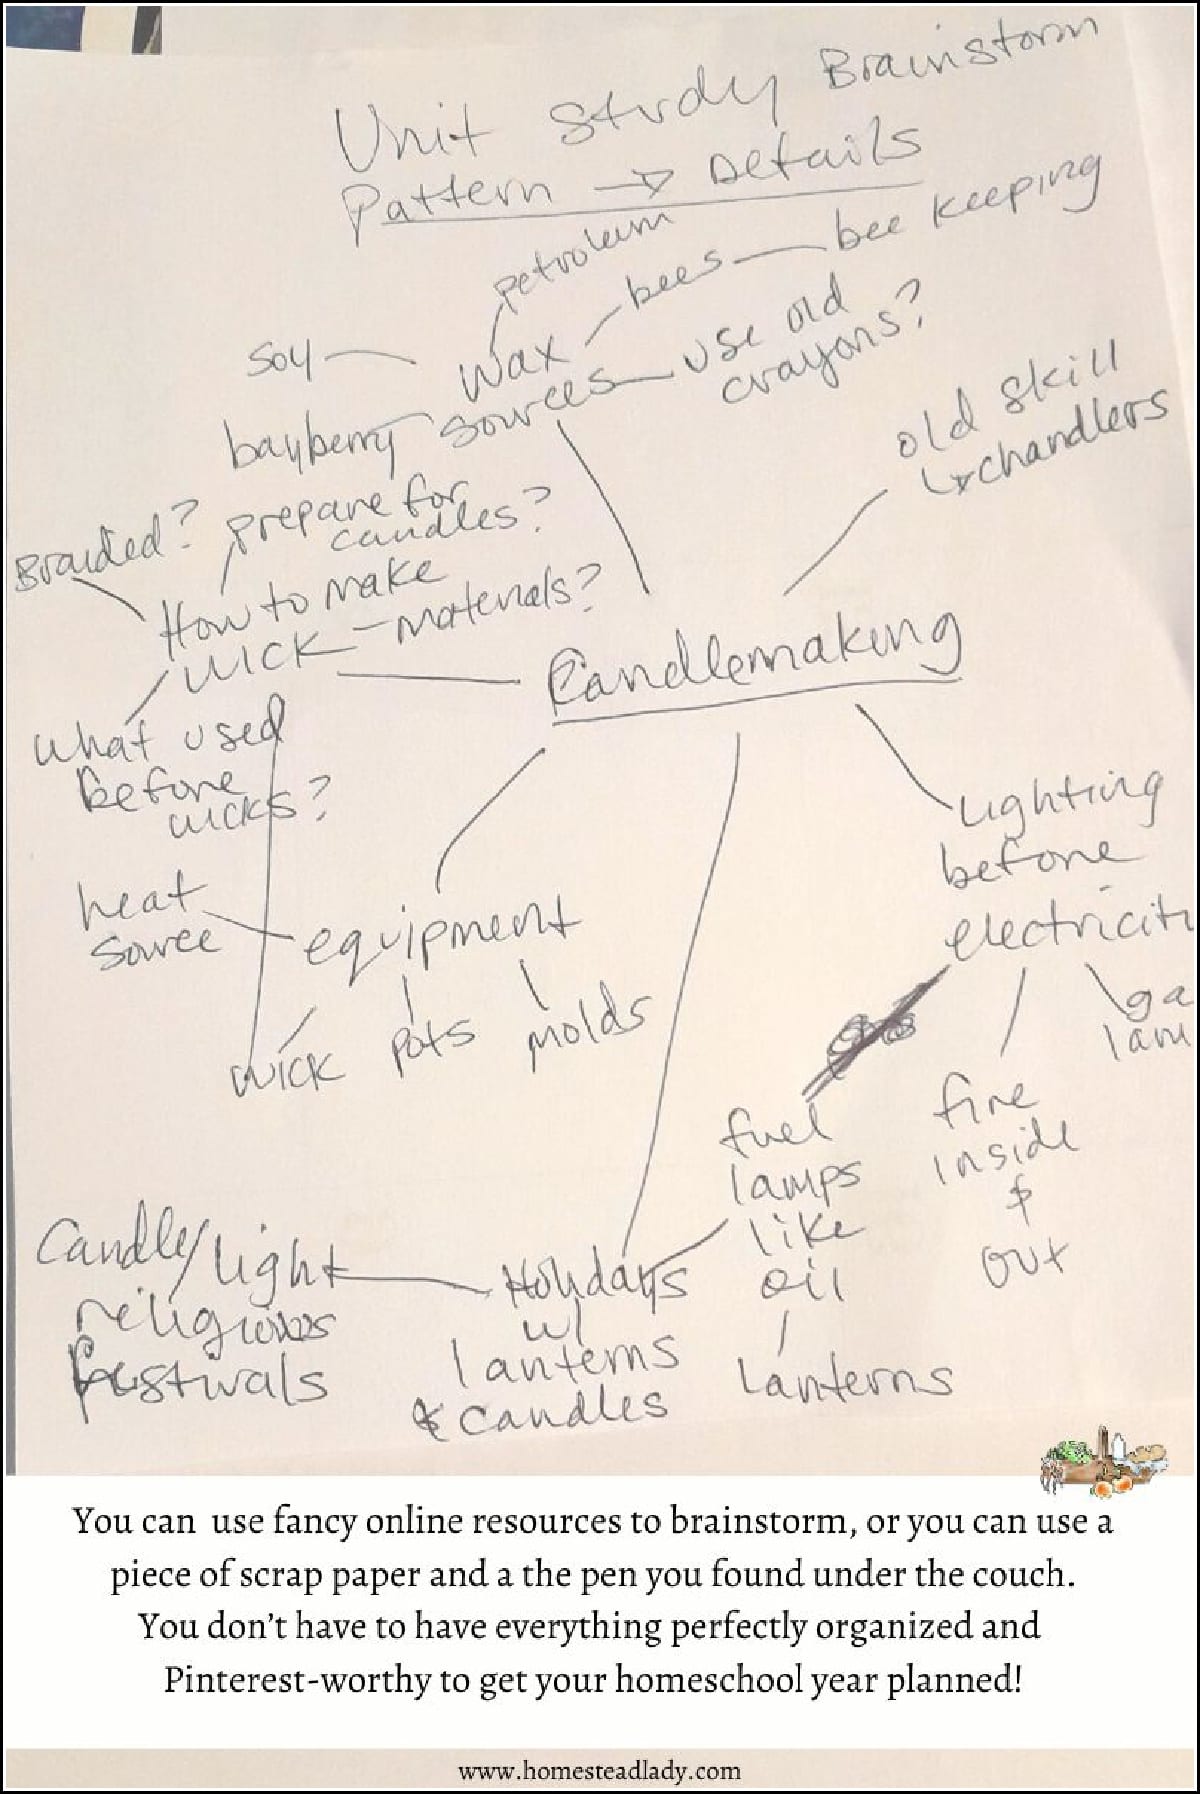 Unit Study Brainstorm
Pattern → Details
petroleum
bees — bee keeping
soy
wax
sources
use old
crayons?
bayberry
old skill
↳ chandlers
Braided?
prepare for
candles?
How to make
wick
materials?
Candlemaking
What used
before
wicks?
Lighting
before
electricit
heat
source
equipment
wick
pots
molds
ga
lam
fuel
lamps
like
oil
lanterns
fire
inside
&
out
Candle/light
religious
festivals
Holidays
w/
lanterns
& candles
You can use fancy online resources to brainstorm, or you can use a
piece of scrap paper and a the pen you found under the couch.
You don't have to have everything perfectly organized and
Pinterest-worthy to get your homeschool year planned!
www.homesteadlady.com